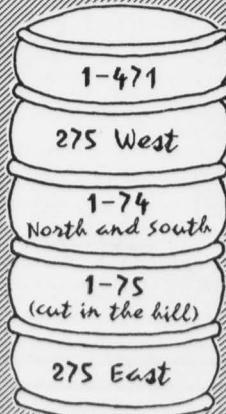 1-471
275 West
1-74
North and South
1-75
(cut in the hill)
275 East